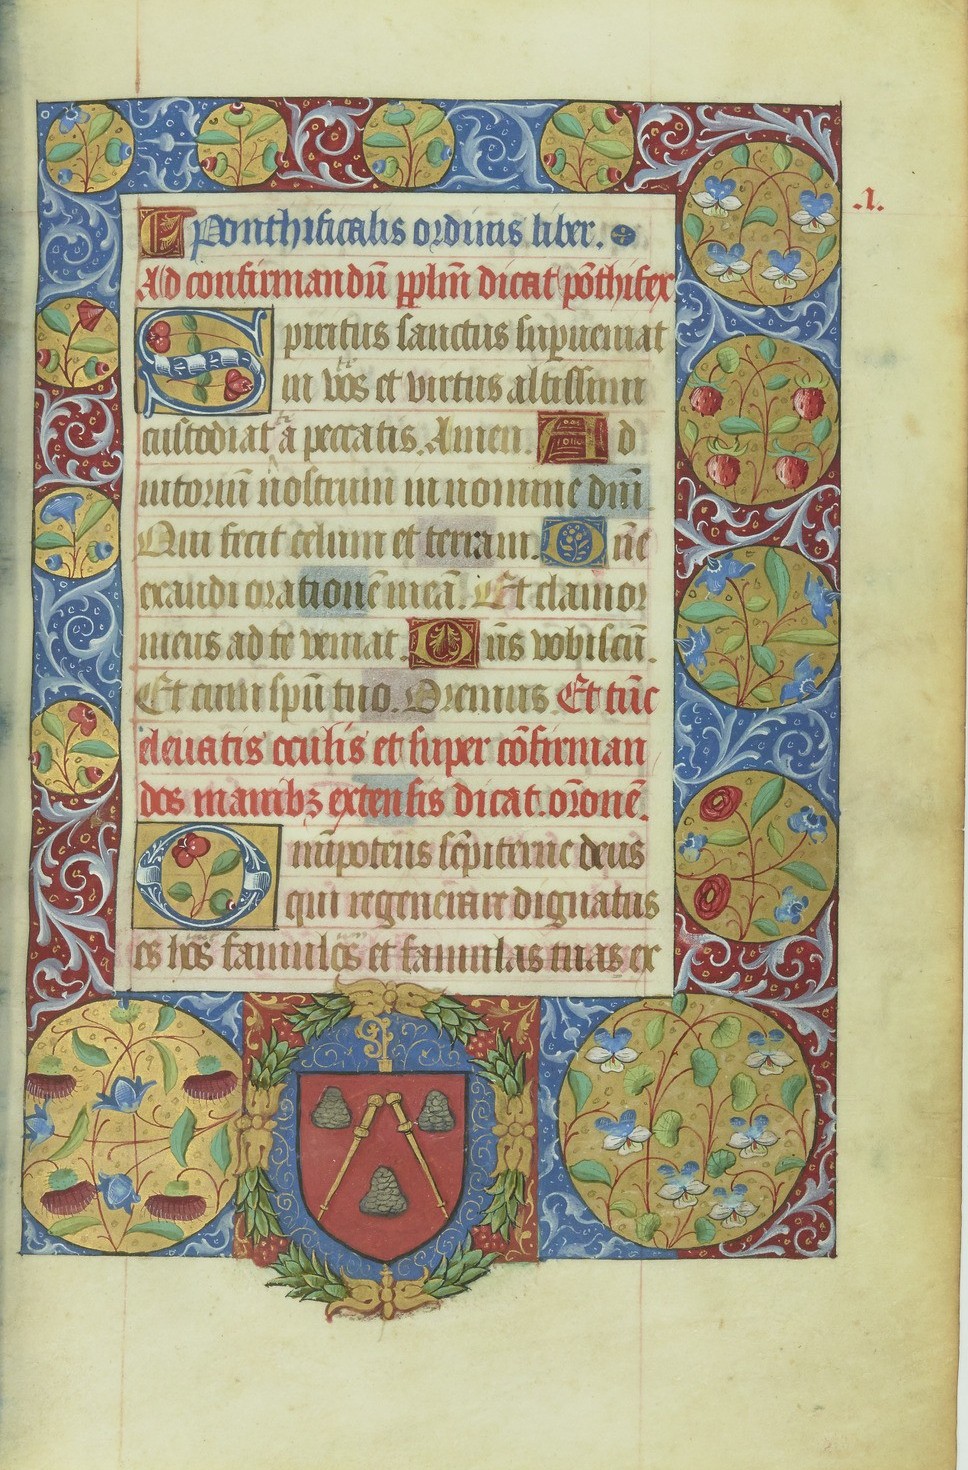 .1.
Ponthificalis ordinis liber.
Ad confirmandū ppl̄m dicat pōthifex
Spiritus sanctus superveniat
in vos et virtus altissimi
custodiat a peccatis. Amen. Ad
iutoriū nostrum in nomine dn̄i
Qui fecit celum et terram. Dn̄e
exaudi orationē meā. Et clamor
meus ad te veniat. Dn̄s vobiscū.
Et cum spū tuo. Oremus. Et tūc
elevatis oculis et super cōfirman
dos manibꝫ extensis dicat. orōnē.
Omīpotens sēpiterne deus
qui regenerare dignatus
es hos famulos et famulas tuas ex